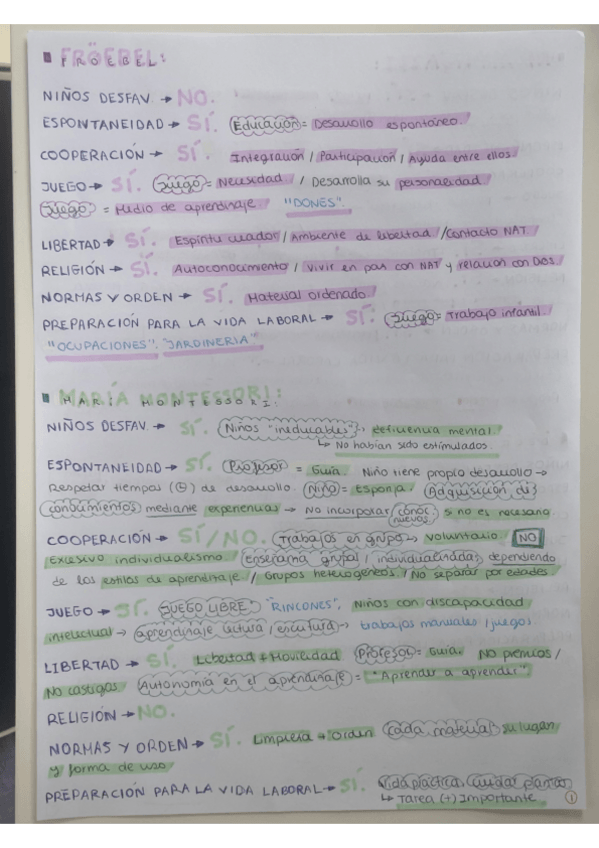 FRÖEBEL:
NIÑOS DESFAV → NO.
ESPONTANEIDAD → SÍ. Educación = Desarrollo espontáneo.
COOPERACIÓN → SÍ. Integración / Participación / Ayuda entre ellos.
JUEGO → SÍ. Juego = Necesidad / Desarrolla su personalidad
Juego = Medio de aprendizaje "DONES".
LIBERTAD → SÍ. Espíritu creador / Ambiente de libertad / Contacto NAT.
RELIGIÓN → SÍ. Autoconocimiento / Vivir en paz con NAT y relación con DIOS.
NORMAS Y ORDEN → SÍ. Material ordenado.
PREPARACIÓN PARA LA VIDA LABORAL → SÍ. Juego = Trabajo infantil.
"OCUPACIONES". "JARDINERIA"
MARÍA MONTESSORI:
NIÑOS DESFAV → SÍ. Niños "ineducables" → deficiencia mental.
↳ No habían sido estimulados.
ESPONTANEIDAD → SÍ. Profesor = Guía. Niño tiene propio desarrollo →
Respetar tiempos de desarrollo. Niño = Esponja. Adquisición de
conocimientos mediante experiencias → No incorporar conoc. nuevos si no es necesario
COOPERACIÓN → SÍ/NO. Trabajos en grupo → voluntario. NO
excesivo individualismo enseñanza grupal / individualizada, dependiendo
de los estilos de aprendizaje / Grupos heterogéneos / No separar por edades
JUEGO → SÍ. JUEGO LIBRE "RINCONES". Niños con discapacidad
intelectual → aprendizaje lectura / escritura → trabajos manuales / juegos
LIBERTAD → SÍ. Libertad + Movilidad. Profesor = Guía. No premios /
No castigos. Autonomía en el aprendizaje = "Aprender a aprender"
RELIGIÓN → NO.
NORMAS Y ORDEN → SÍ. Limpieza + Orden Cada material su lugar
y forma de uso
PREPARACIÓN PARA LA VIDA LABORAL → SÍ. Vida práctica, cuidar plantas
↳ Tarea (+) Importante.
1